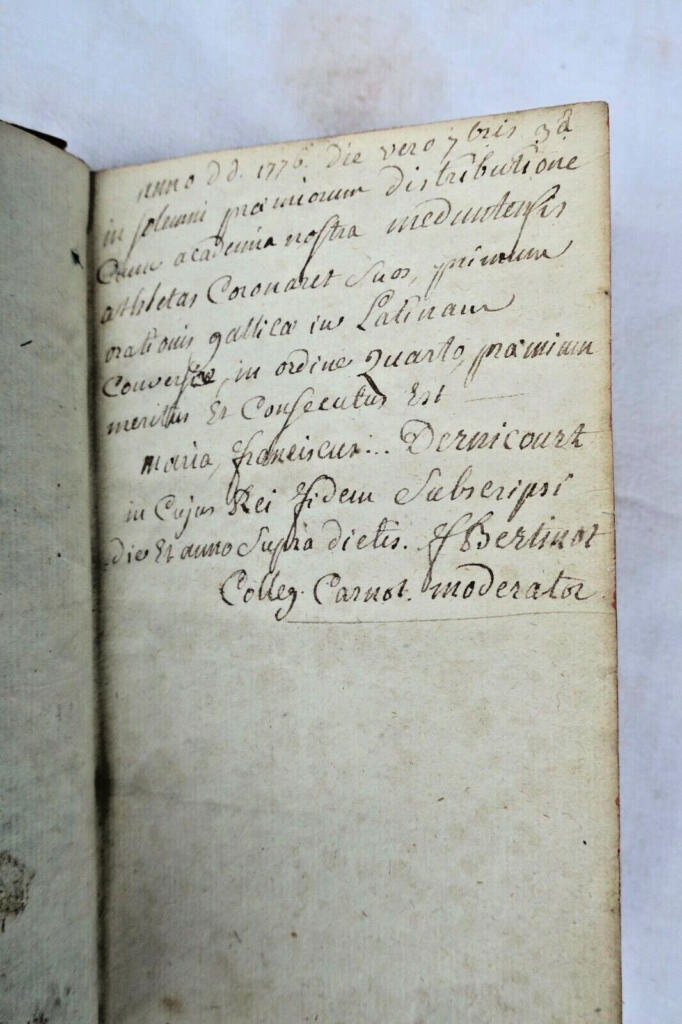 anno d d. 1776. die vero 7 bris 3a
in solemni præmiorum distributione
Cum academia nostra meduntensis
athletas Coronaret Suos, primum
orationis gallicæ in Latinam
Conversæ, in ordine quarto, præmium
meritus Et Consecutus Est
maria, franciscus... Dernicourt
in Cujus Rei fidem Subscripsi
die Et anno Supra dictis. f Bertinot
Colleg. Carnot. moderator.